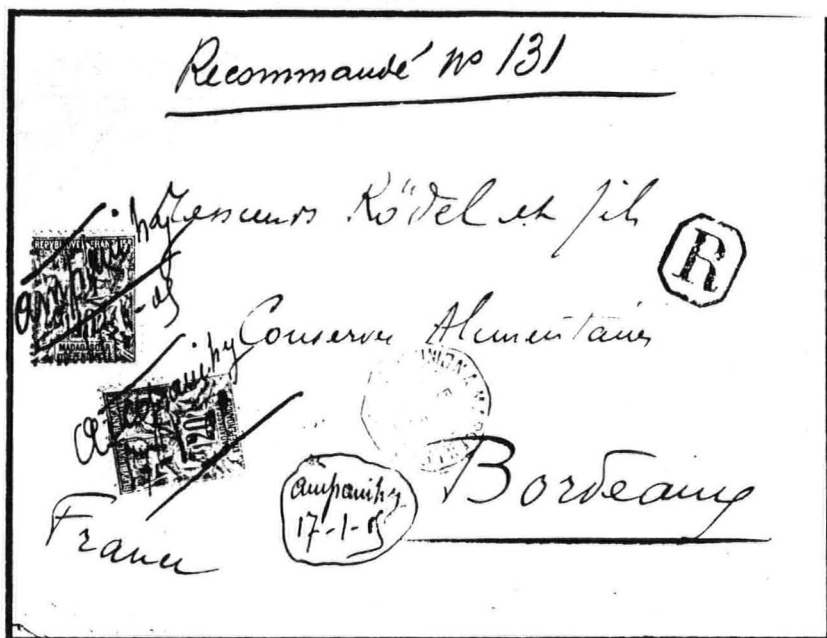 Recommandé no 131
Messieurs Rödel et fils
R
Conserves Alimentaires
Bordeaux
France
Ampanihy
17-1-05
REPUBLIQUE FRANCAISE
Ampanihy
MADAGASCAR
Ampanihy